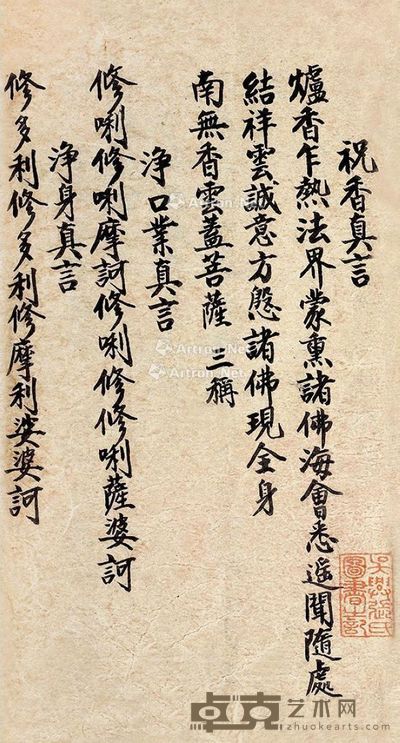 祝香真言
爐香乍熱法界蒙熏諸佛海會悉遥聞隨處
結祥雲誠意方慇諸佛現全身
南無香雲蓋菩薩 三稱
淨口業真言
修唎修唎摩訶修唎修修唎薩婆訶
淨身真言
修多利修多利修摩利娑婆訶
吳興張氏
圖書之記
Artron.Net
Artron.Net
Artron.Net
卓克艺术网
zhuokearts.com